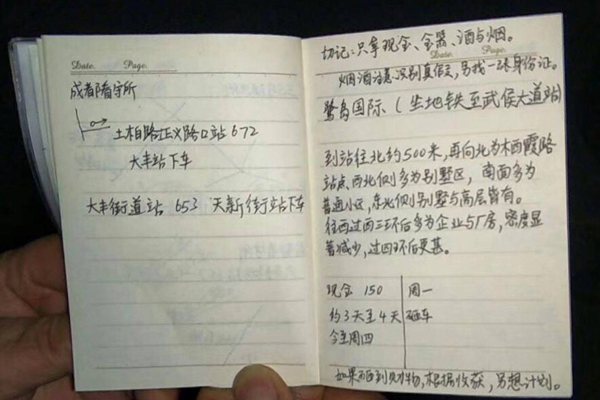 Date. Page.
成都看守所
土柏路正义路口站 672
大丰站下车
大丰街道站 653 天新街站下车
切记:只拿现金、金器、酒与烟。
Date. Page.
烟酒注意识别真假,另找一张身份证。
鹭岛国际(坐地铁至武侯大道站)
到站往北约500米,再向北为木西霞路
站点西北侧多为别墅区,南面多为
普通小区,东北侧别墅与高层皆有。
往西过西三环后多为企业与厂房,密度显
著减少,过四环后更甚。
现金 150 周一
约3天至4天 砸车
今至周四
如果 到财物,根据收获,另想计划。